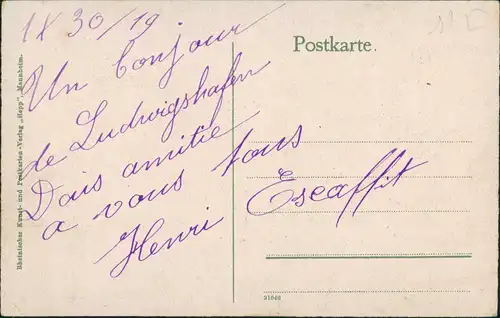 1X 30/19
Un bonjour
de Ludwigshafen
Dous amitié
a vous tous
Henri
Postkarte.
Escaffit
31646
Rheinischer Kunst- und Postkarten-Verlag „Hepp", Mannheim.